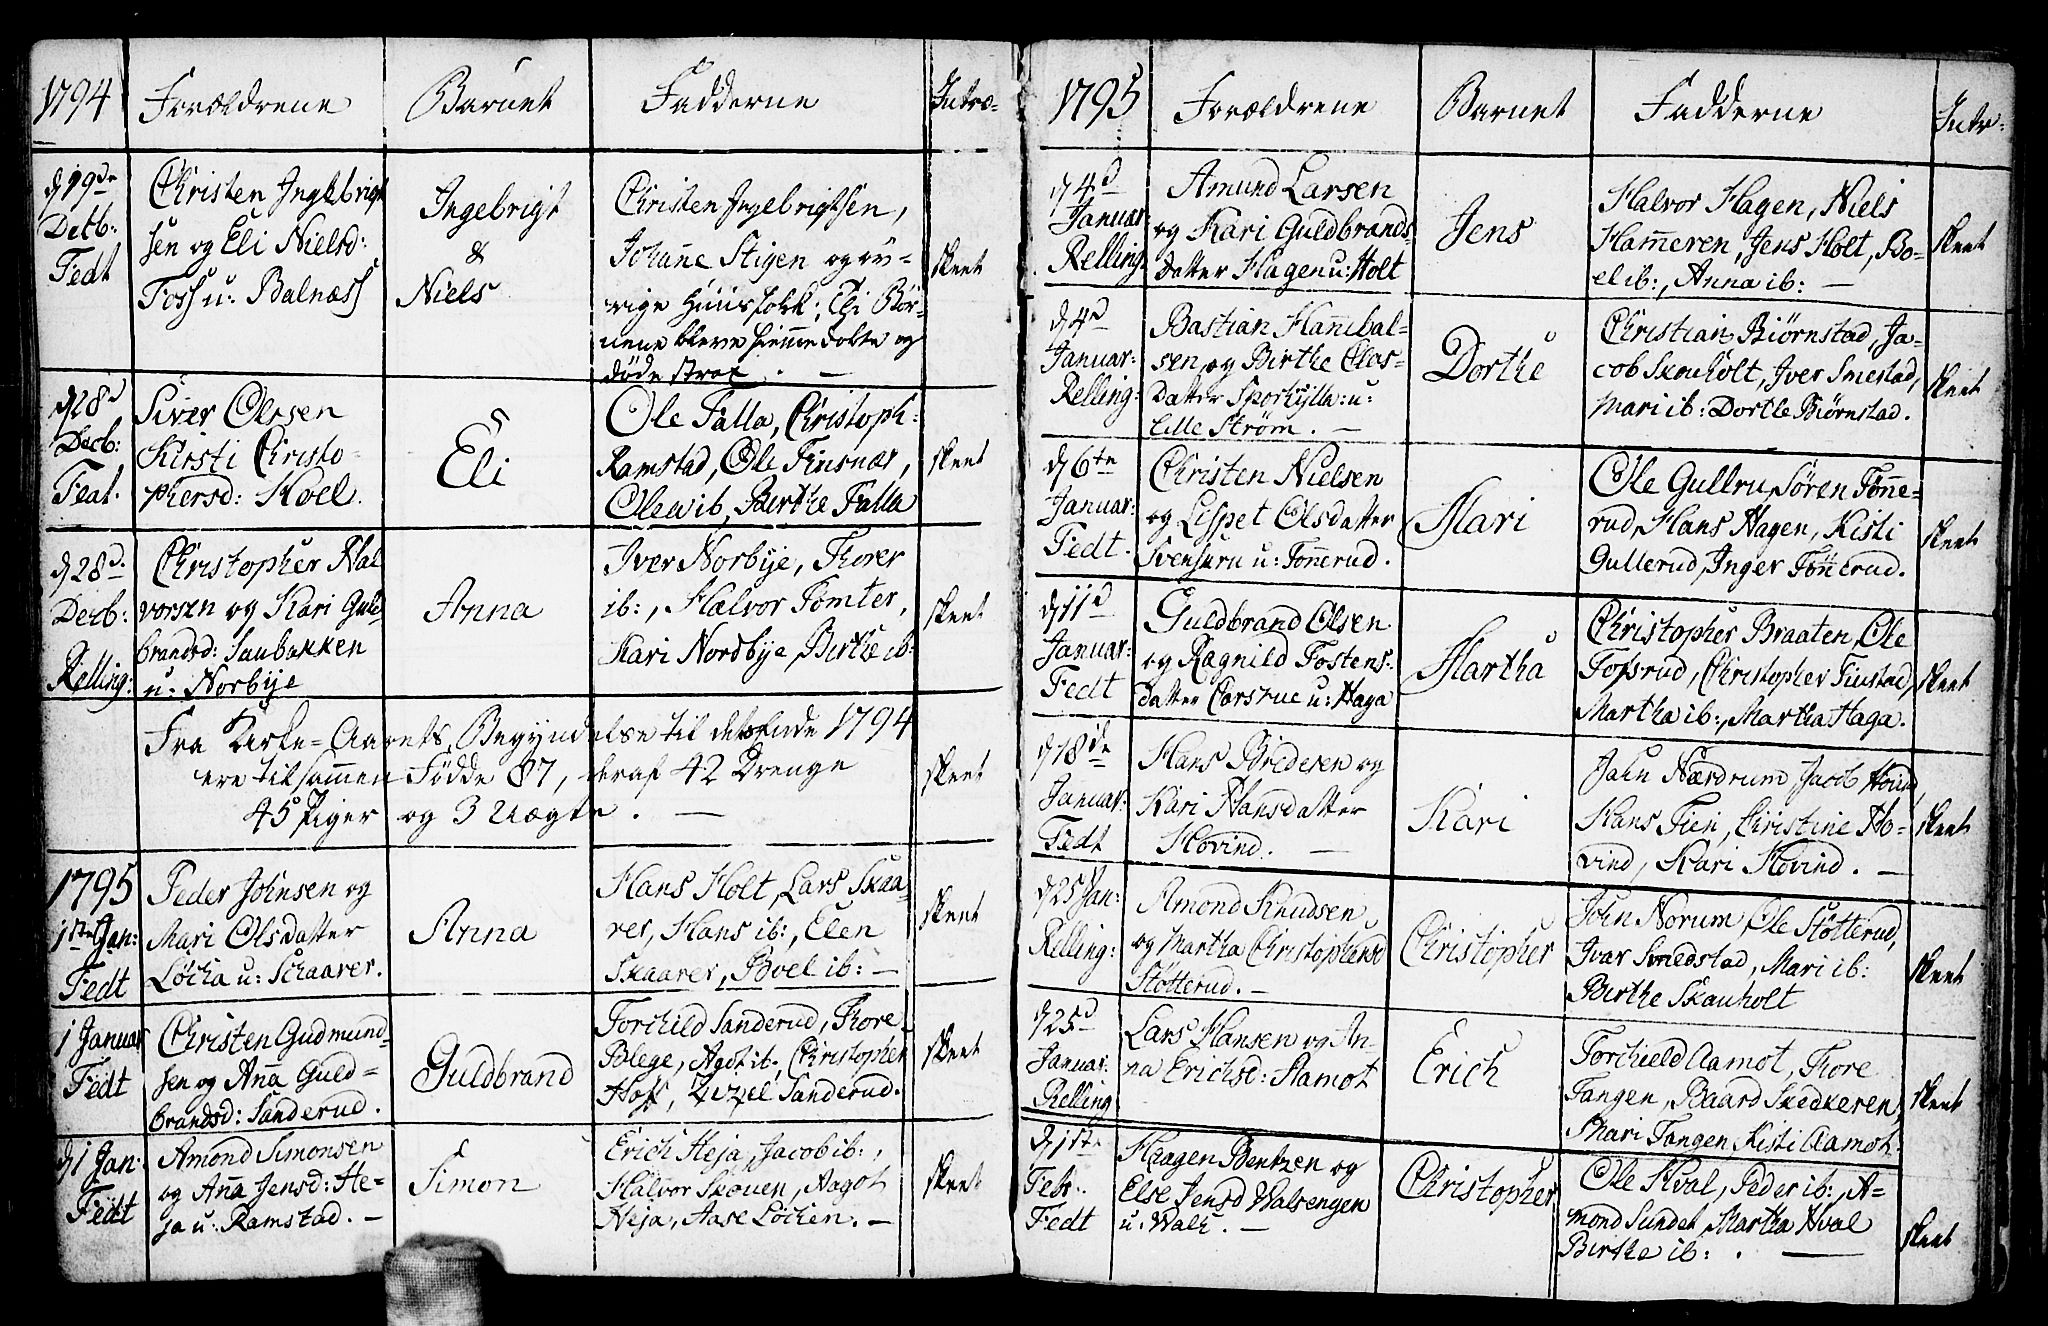 1794
Forældrene
Barnet
Fadderne
Intro-
d 19de
Decb:
Fedt
Christen Inglebrigt
sen og Eli Nielsd:
Foss u: Balnæss
Ingebrigt
&
Niels
Christen Ingelbrigtsen,
Johane Stigen og øv-
rige Huusfolk; thi Bør-
nene bleve hiemmedøbte og
døde strax. —
skeet
d 28d
Decb:
Feat.
Siver Olssen
Kirsti Christo-
phersd: Hoel.
Eli
Ole Falla, Christoph:
Ramstad, Ole Finsnær,
Olea ib, Birthe Falla
skeet
d 28d.
Decb:
Relling:
Christopher Hal
vorsen og Kari Guld
brandsd: Saubakken
u: Norbÿe
Anna
Iver Norbÿe, Thorer
ib:, Halvor Tomter,
Kari Nordbÿe, Birthe ib:
skeet
Fra Kirke-Aarets Begyndelse til dets Ende 1794
ere tilsammen Fødde 87, deraf 42 Drenge
45 Piger og 3 Uægte. —
skeet
1795
1ste Jan:
Fedt
Peder Johnsen og
Mari Olsdatter
Løcha u: Schaarer.
Anna
Hans Holt, Lars Skaa-
rer, Hans ib:, Elen
Skaarer, Boel ib: —
skeet
1 Januar
Fedt
Christen Gudmund-
sen og Anna Guld-
brandsd: Sanderud.
Guldbrand
Torchild Sanderud, Thore
Blege, Agot ib:, Christopher
Hoff, Zizel Sanderud.
skeet
d 1 Jan:
Fedt
Amond Simonsen
og Anna Jensd: He-
ja u: Ramstad. —
Simon
Erich Heja, Jacob ib:,
Halvor Skouen, Aagot
Heja, Aase Løchen. —
skeet
1795
Forældrene
Barnet
Fadderne
Intr:
d 4d
Januar:
Relling:
Amund Larsen
og Kari Guldbrands-
datter Hagen u: Holt
Jens
Halvor Hagen, Niels
Hameren, Jens Holt, Bo-
el ib:, Anna ib: —
skeet
d 4d
Januar:
Relling:
Bastian Hannibal-
sen og Birthe Olas-
datter Sporkylla: u:
Lille Strøm. —
Dorthe
Christian Biørnstad, Ja-
cob Skouholt, Iver Smestad,
Mari ib: Dortle Biørnstad.
skeet
d 6te
Januar:
Fedt.
Christen Nielsen
og Lispet Olsdatter
Svensuru u: Tonnerud.
Mari
Ole Gullru, Søren Tønne-
rud, Hans Hagen, Kisti
Gullerud, Inger Tönnerud.
skeet
d 11d
Januar:
Fedt
Guldbrand Olsen
og Ragnild Tostens-
datter Carsrue u: Haga
Martha
Christopher Braaten, Ole
Topsrud, Christopher Finstad,
Martha ib:, Martha Haga.
skeet
d 18de
Januar:
Fedt
Hans Bredesen og
Kari Hansdatter
Hovind. —
Kari
John Nærdrum, Jacob Hovind,
Hans Tien, Christine Ho-
vind, Kari Hovind. —
skeet
d 25 Jan:
Relling:
Amond Knudsen
og Martha Christophersd
Støtterud. —
Christopher
John Norum, Ole Støtterud,
Ivar Smedstad, Mari ib:
Birthe Skauholt
skeet
d 25d
Januar:
Relling
Lars Hansen og An-
na Erichsd: Aamot
Erich
Torchield Aamot, Thore
Tangen, Baard Skedkeren,
Mari Tangen, Kisti Aamot
skeet
d 1ste
Febr:
Fedt
Haagen Bentzen og
Else Jensd Valsengen
u: Walc. —
Christopher
Ole Hval, Peder ib:, A-
mond Sundet, Martha Hval
Birthe ib: . —
skeet